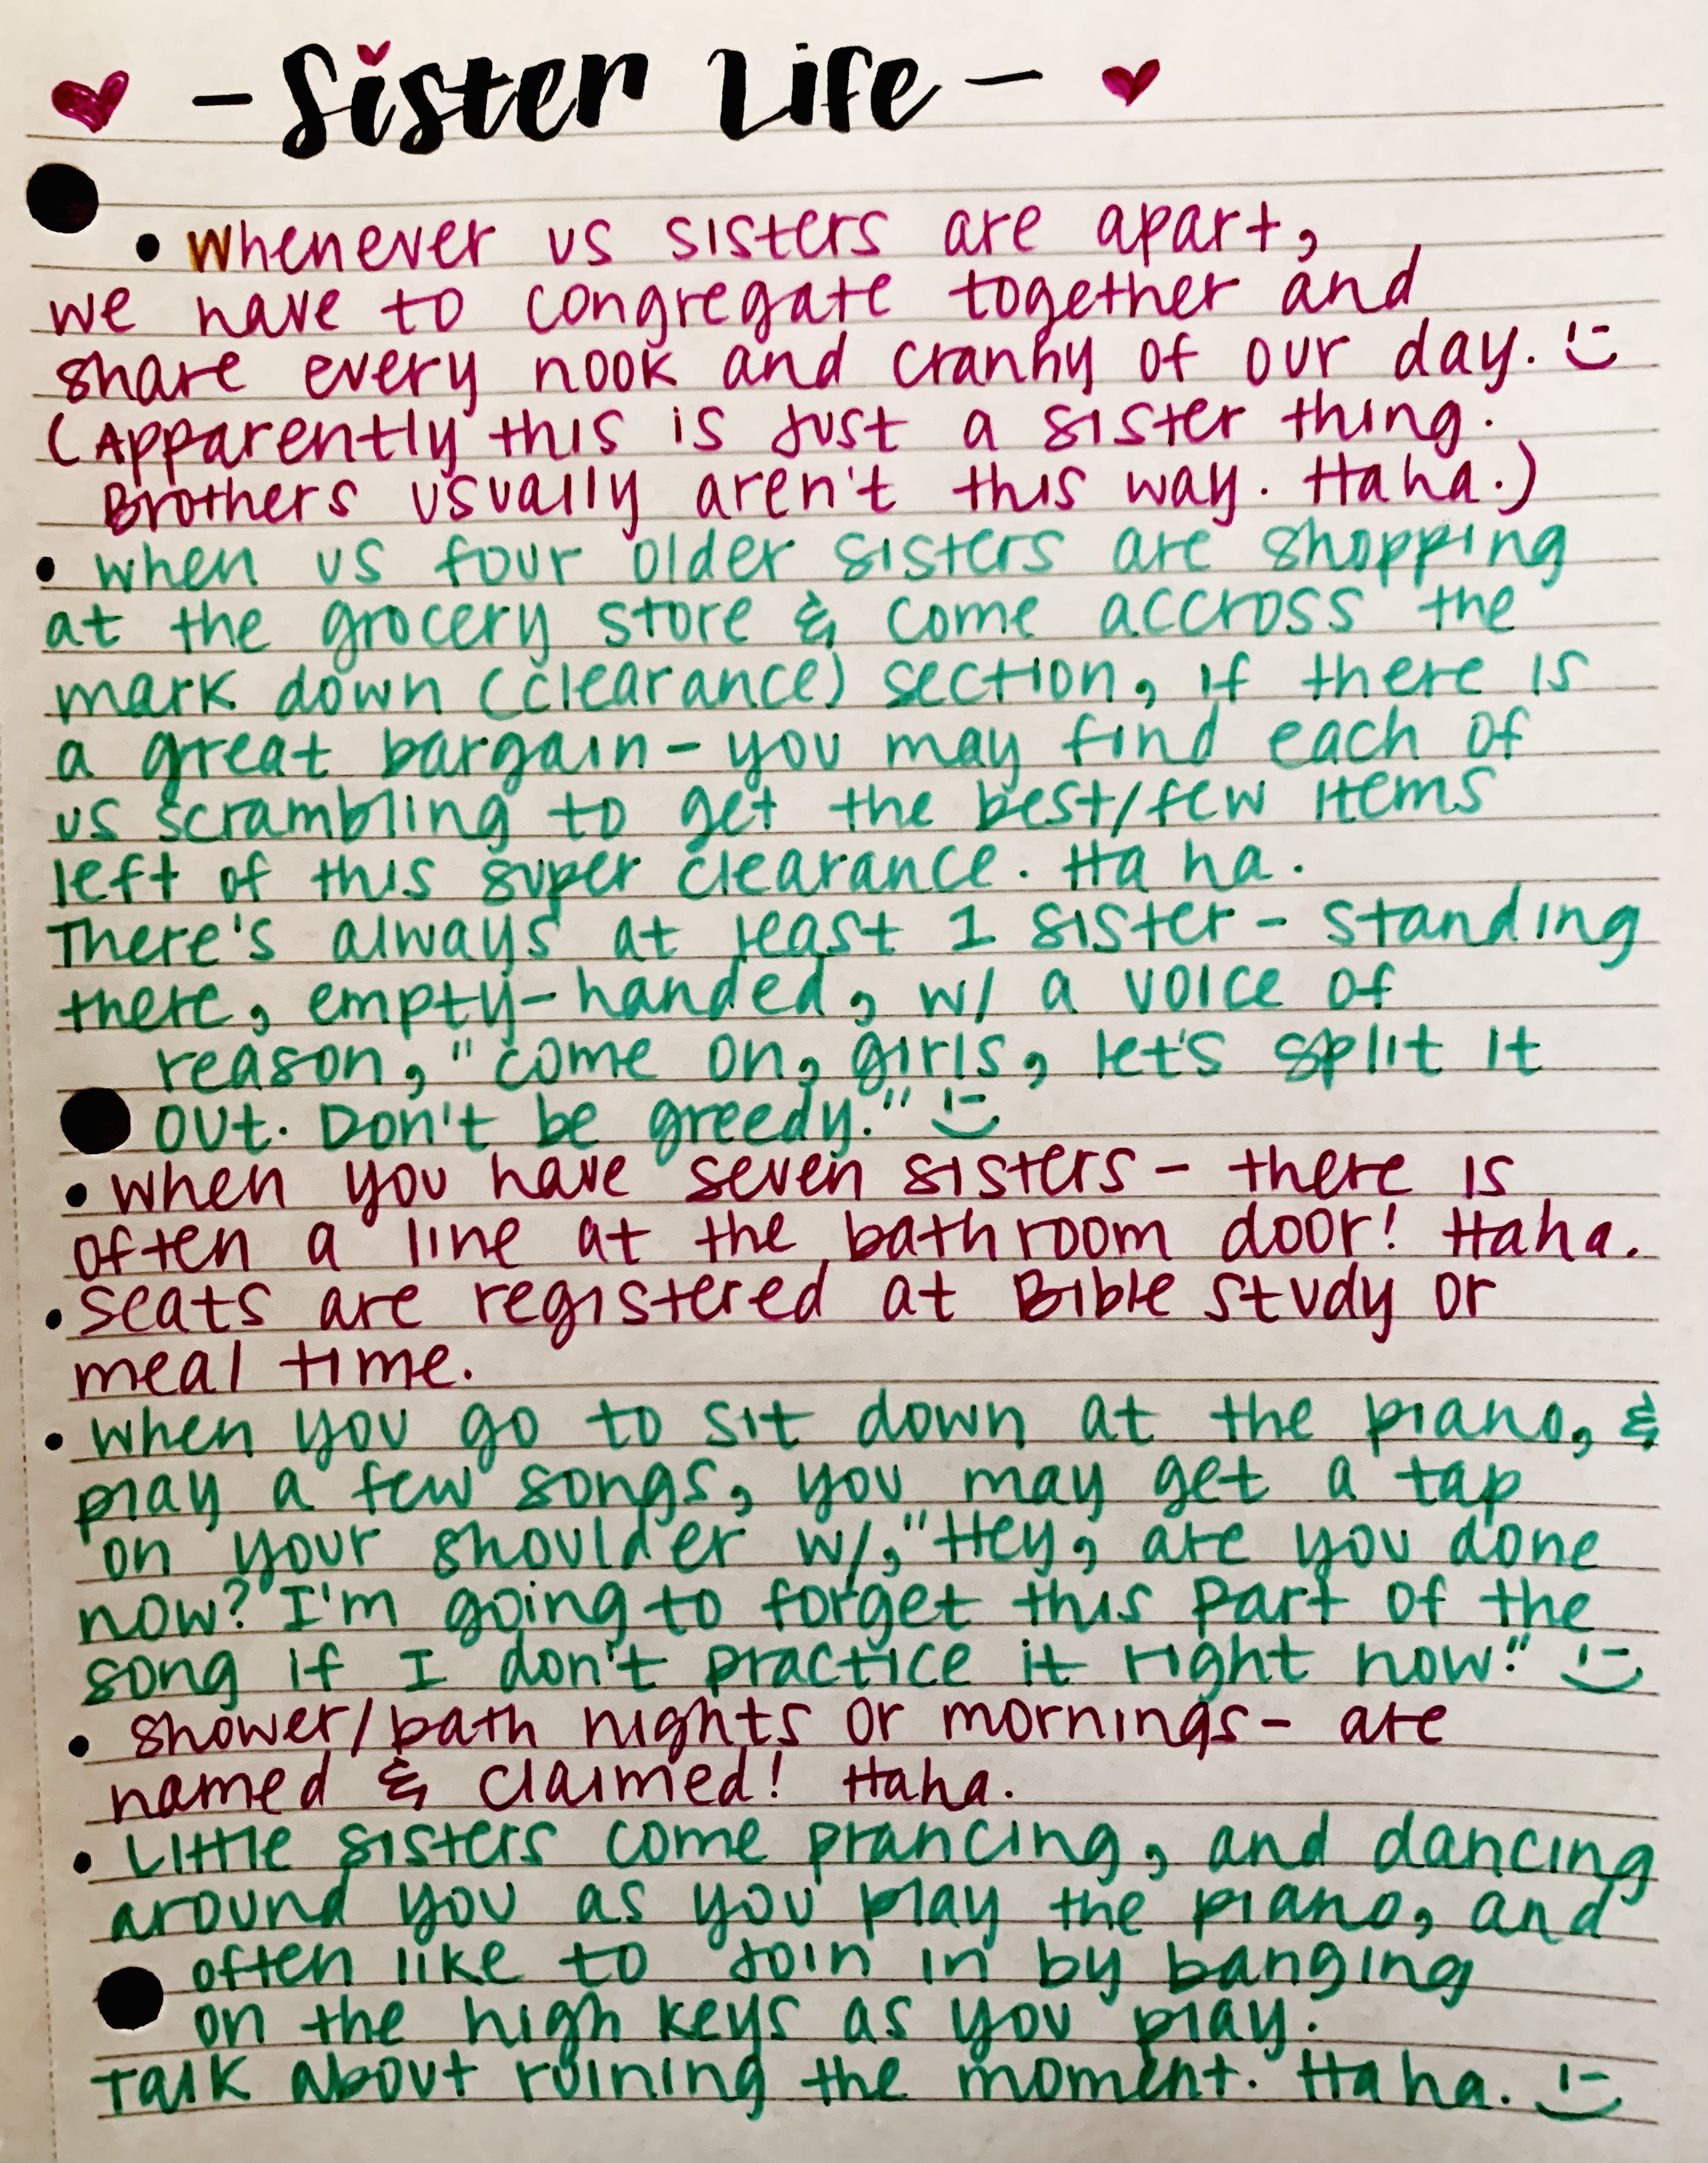 ♥ - Sister Life - ♥
• Whenever us sisters are apart,
we have to congregate together and
share every nook and cranny of our day. :)
(Apparently this is just a sister thing.
Brothers usually aren't this way. Haha.)
• when us four older sisters are shopping
at the grocery store & come accross the
mark down (clearance) section, if there is
a great bargain - you may find each of
us scrambling to get the best/few items
left of this super clearance. Ha ha.
There's always at least 1 sister - standing
there, empty-handed, w/ a voice of
reason, "come on, girls, let's split it
out. Don't be greedy." :)
• when you have seven sisters - there is
often a line at the bathroom door! Haha.
• Seats are registered at Bible study or
meal time.
• when you go to sit down at the piano, &
play a few songs, you may get a tap
on your shoulder w/, "Hey, are you done
now? I'm going to forget this part of the
song if I don't practice it right now." :)
• Shower/bath nights or mornings - are
named & claimed! Haha.
• Little sisters come prancing, and dancing
around you as you play the piano, and
often like to join in by banging
on the high keys as you play.
Talk about ruining the moment. Ha ha. :)